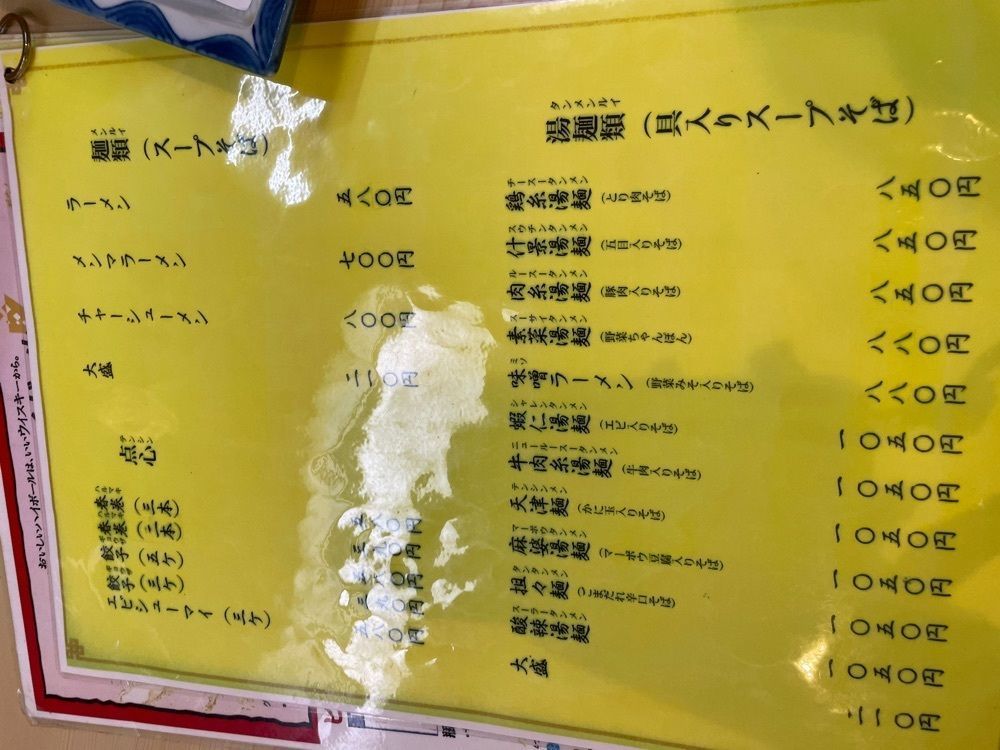 麺類（スープそば）
メンルイ
ラーメン 五八〇円
メンマラーメン 七〇〇円
チャーシューメン 八〇〇円
大盛 一一〇円
点心
テンシン
春巻（三本）
ハルマキ
春巻（二本）
ハルマキ
餃子（五ケ）
ギョウザ
餃子（三ケ） 三九〇円
ギョウザ
エビシューマイ（三ケ） 五八〇円
湯麺類（具入りスープそば）
タンメンルイ
鶏糸湯麺（とり肉そば） 八五〇円
チースータンメン
什景湯麺（五目入りそば） 八五〇円
スウチンタンメン
肉糸湯麺（豚肉入りそば） 八五〇円
ルースータンメン
素菜湯麺（野菜ちゃんぽん） 八八〇円
スーサイタンメン
味噌ラーメン（野菜みそ入りそば） 八八〇円
ミソ
蝦仁湯麺（エビ入りそば） 一〇五〇円
シャレンタンメン
牛肉糸湯麺（牛肉入りそば） 一〇五〇円
ニュールースータンメン
天津麺（かに玉入りそば） 一〇五〇円
テンシンメン
麻婆湯麺（マーボウ豆腐入りそば） 一〇五〇円
マーボウタンメン
担々麺（ごまだれ辛口そば） 一〇五〇円
タンタンメン
酸辣湯麺 一〇五〇円
スーラータンメン
大盛 一一〇円
おいしいハイボールは、いいウイスキーから。